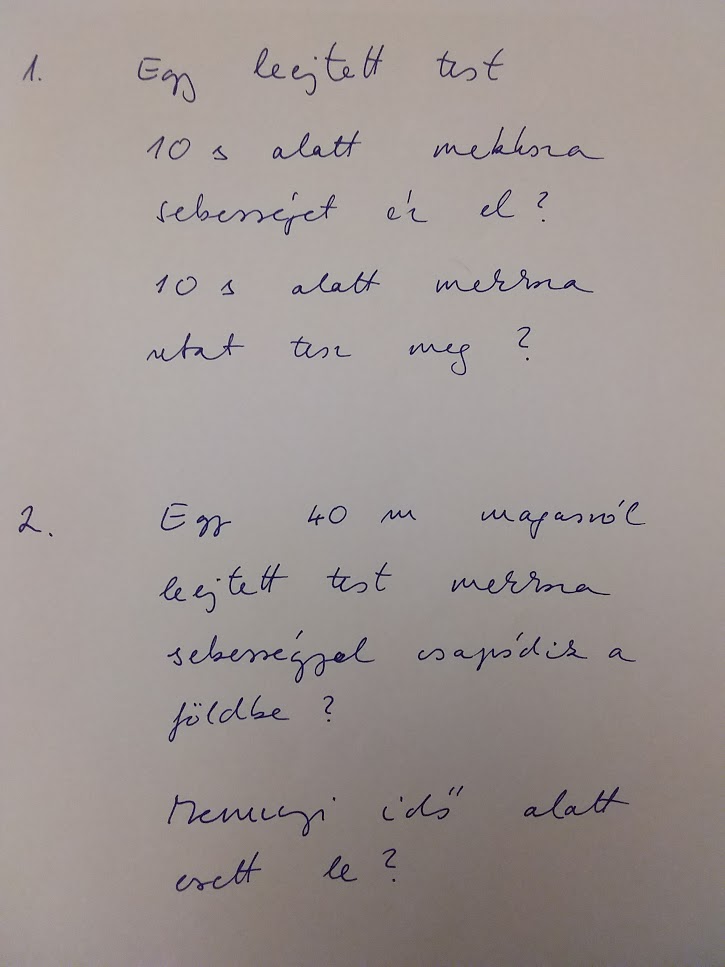 1. Egy leejtett test
10 s alatt mekkora
sebességet ér el?
10 s alatt mekkora
utat tesz meg?
2. Egy 40 m magasról
leejtett test mekkora
sebességgel csapódik a
földbe?
Mennyi idő alatt
esett le?